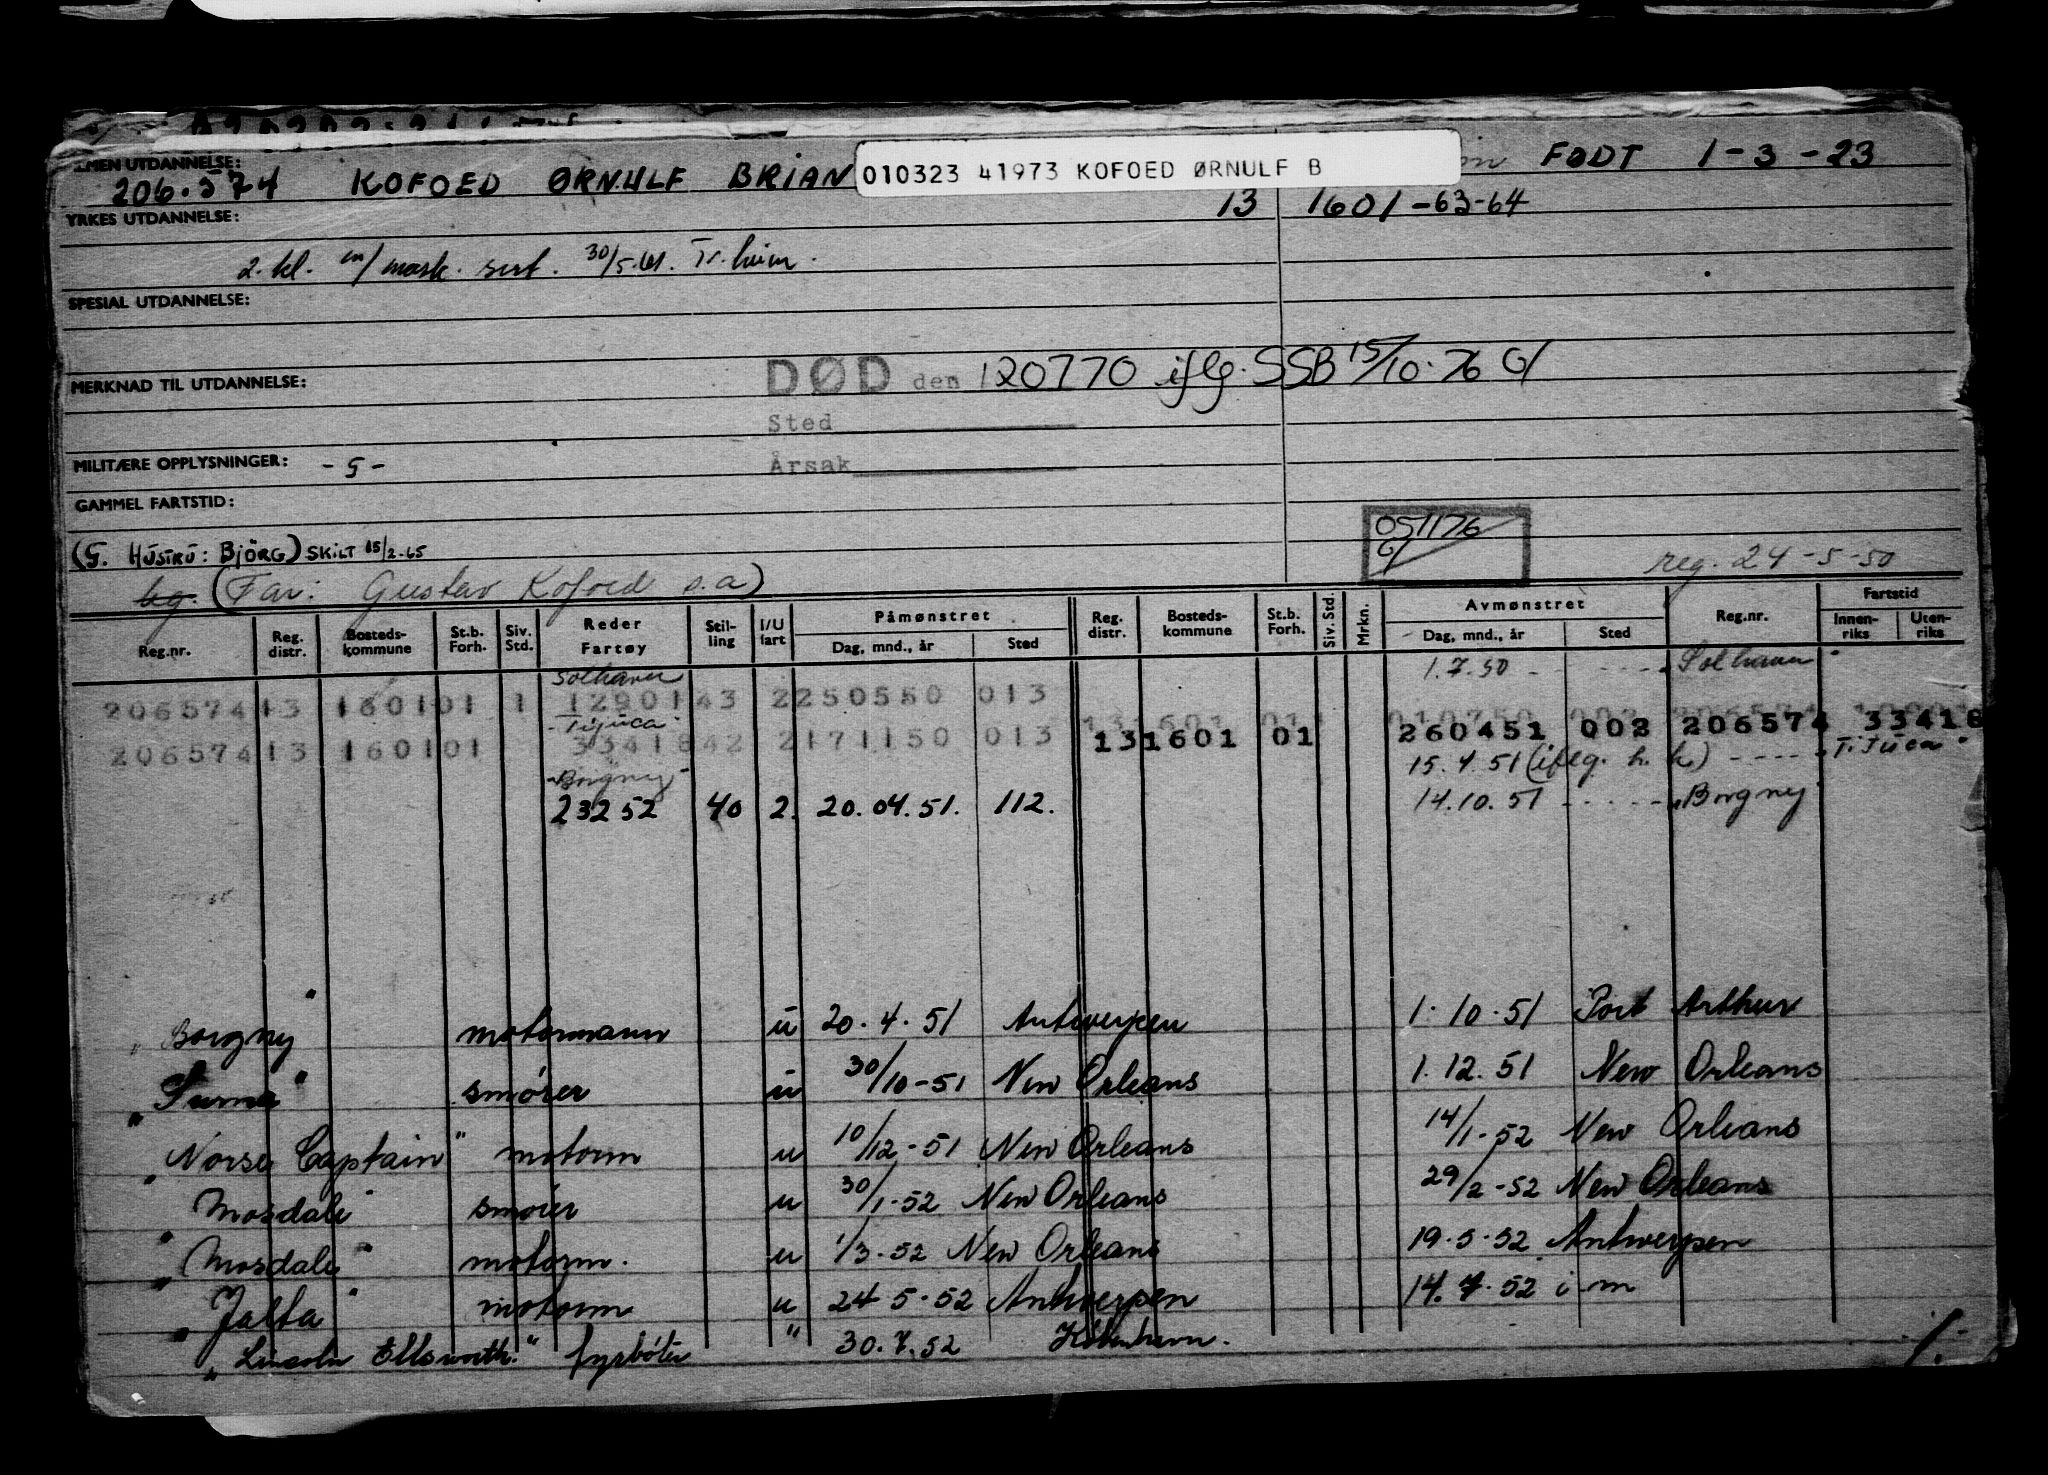 ALMEN UTDANNELSE:
206.574 KOFOED ØRNULF BRIAN 010323 41973 KOFOED ØRNULF B FØDT 1-3-23
YRKES UTDANNELSE: 13 1601-63-64
2. kl. m/ mask. sert. 30/5.61. Tr.heim.
SPESIAL UTDANNELSE:
MERKNAD TIL UTDANNELSE: DØD den 120770 iflg. SSB 15/10.76 G/
Sted
MILITÆRE OPPLYSNINGER: - G - Årsak
GAMMEL FARTSTID:
051176
G/
(G. HUSTRU: BJÖRG) SKILT 15/2-65 reg. 24-5-50
(Far: Gustav Kofoed s.a)
Reg.nr. Reg. distr. Bosteds-kommune St.b. Forh. Siv. Std. Reder Fartøy Stil-ling I/U fart Påmønstret Dag, mnd., år Sted Reg. distr. Bosteds-kommune St.b. Forh. Siv. Std. Mrkn. Avmønstret Dag, mnd., år Sted Reg.nr. Fartstid Innen-riks Uten-riks
Solhavn 1.7.50 - - - - "Solhavn"
206574 13 1601 01 1 12901 43 2 250550 013
-Tijuca-
206574 13 1601 01 33418 42 2 171150 013 131601 01 260451 002 206574 33418
15.4.51 (iflg. h. k.) - - - - "Tijuca"
-Borgny-
23252 40 2. 20.04.51. 112. 14.10.51 - - - - - "Borgny
"Borgny" motormann u 20.4.51 Antwerpen 1.10.51 Port Arthur
" " smører u 30/10-51 New Orleans 1.12.51 New Orleans
"Norse Captain" motorm u 10/12-51 New Orleans 14/1-52 New Orleans
"Mosdale" smører u 30/1-52 New Orleans 29/2-52 New Orleans
"Mosdale" motorm. u 1/3.52 New Orleans 19.5.52 Antwerpen
"Jalta" motorm u 24 5.52 Antwerpen 14.7.52 i m
"Lincoln Ellsworth." fyrbøter " 30.7.52 København.